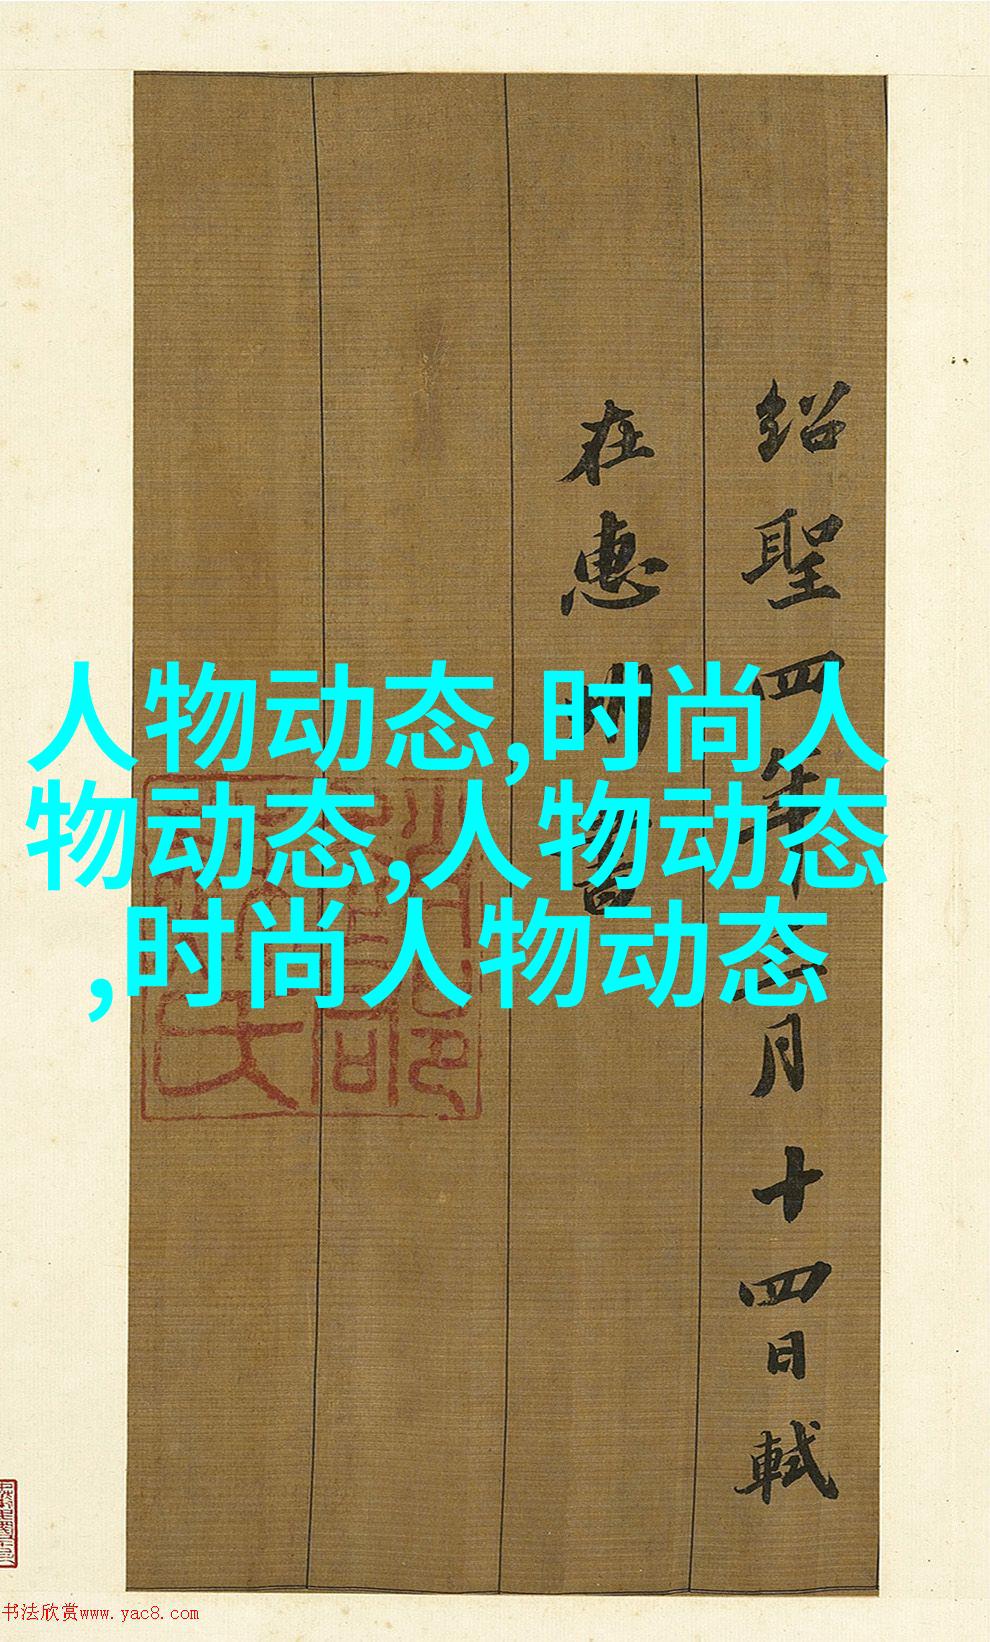 人物动态,时尚人
物动态,人物动态
,时尚人物动态
紹聖四年三月十四日軾
在惠州書
书法欣赏www.yac8.com